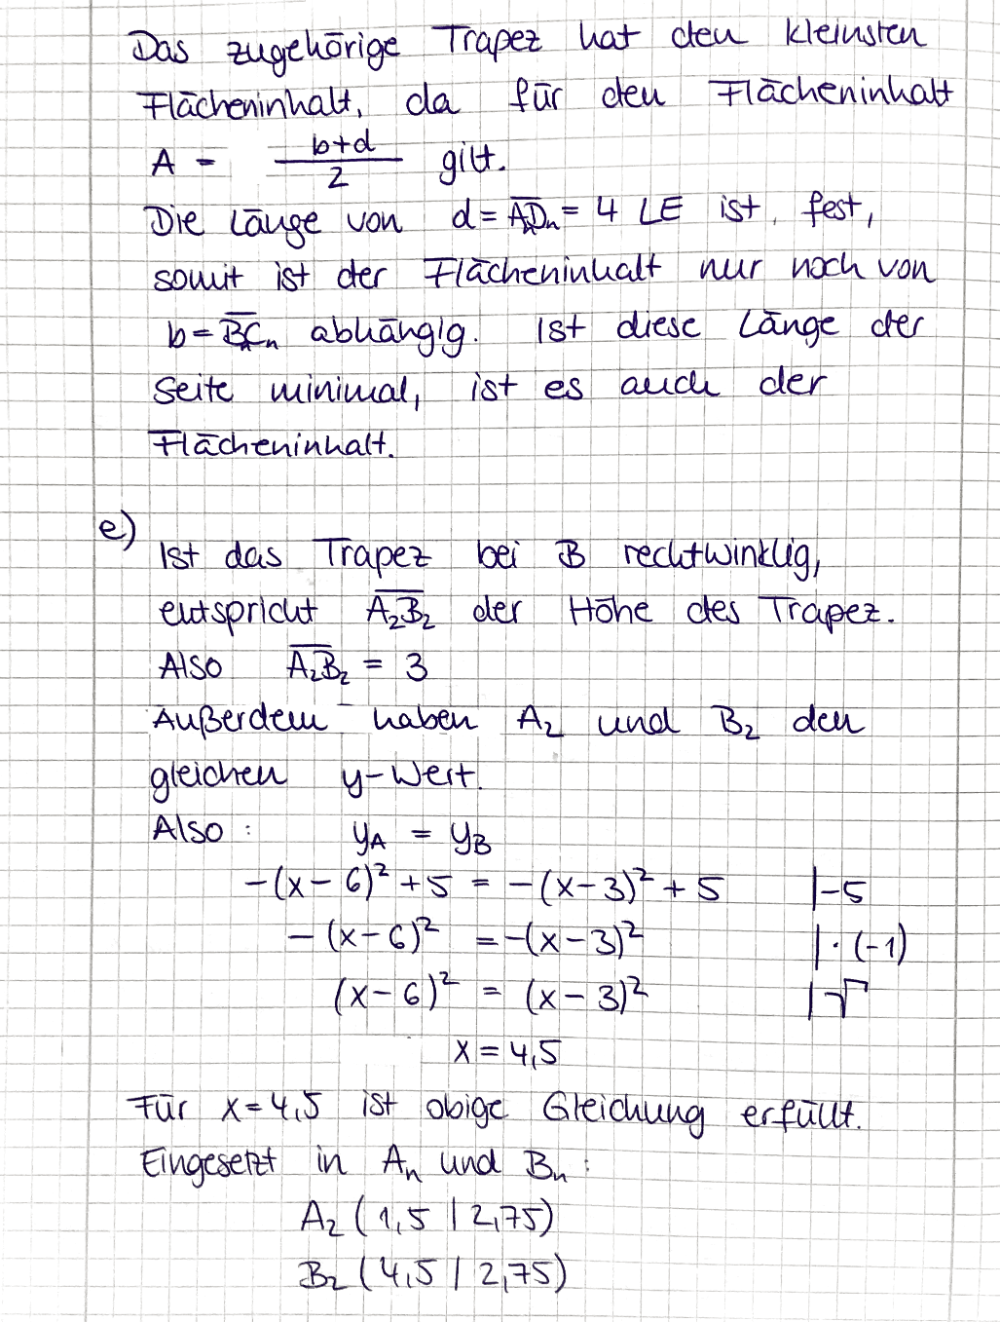 Das zugehörige Trapez hat den kleinsten
Flächeninhalt, da für den Flächeninhalt
A = (b+d)/2 gilt.
Die Länge von d = A̅D̅ₙ = 4 LE ist fest,
somit ist der Flächeninhalt nur noch von
b = B̅C̅ₙ abhängig. Ist diese Länge der
Seite minimal, ist es auch der
Flächeninhalt.
e)
Ist das Trapez bei B rechtwinklig,
entspricht A̅₂B̅₂ der Höhe des Trapez.
Also A̅₂B̅₂ = 3
Außerdem haben A₂ und B₂ den
gleichen y-Wert.
Also: y_A = y_B
-(x-6)² + 5 = -(x-3)² + 5 |-5
-(x-6)² = -(x-3)² |·(-1)
(x-6)² = (x-3)² |√
x = 4,5
Für x = 4,5 ist obige Gleichung erfüllt.
Eingesetzt in Aₙ und Bₙ:
A₂ (1,5 | 2,75)
B₂ (4,5 | 2,75)